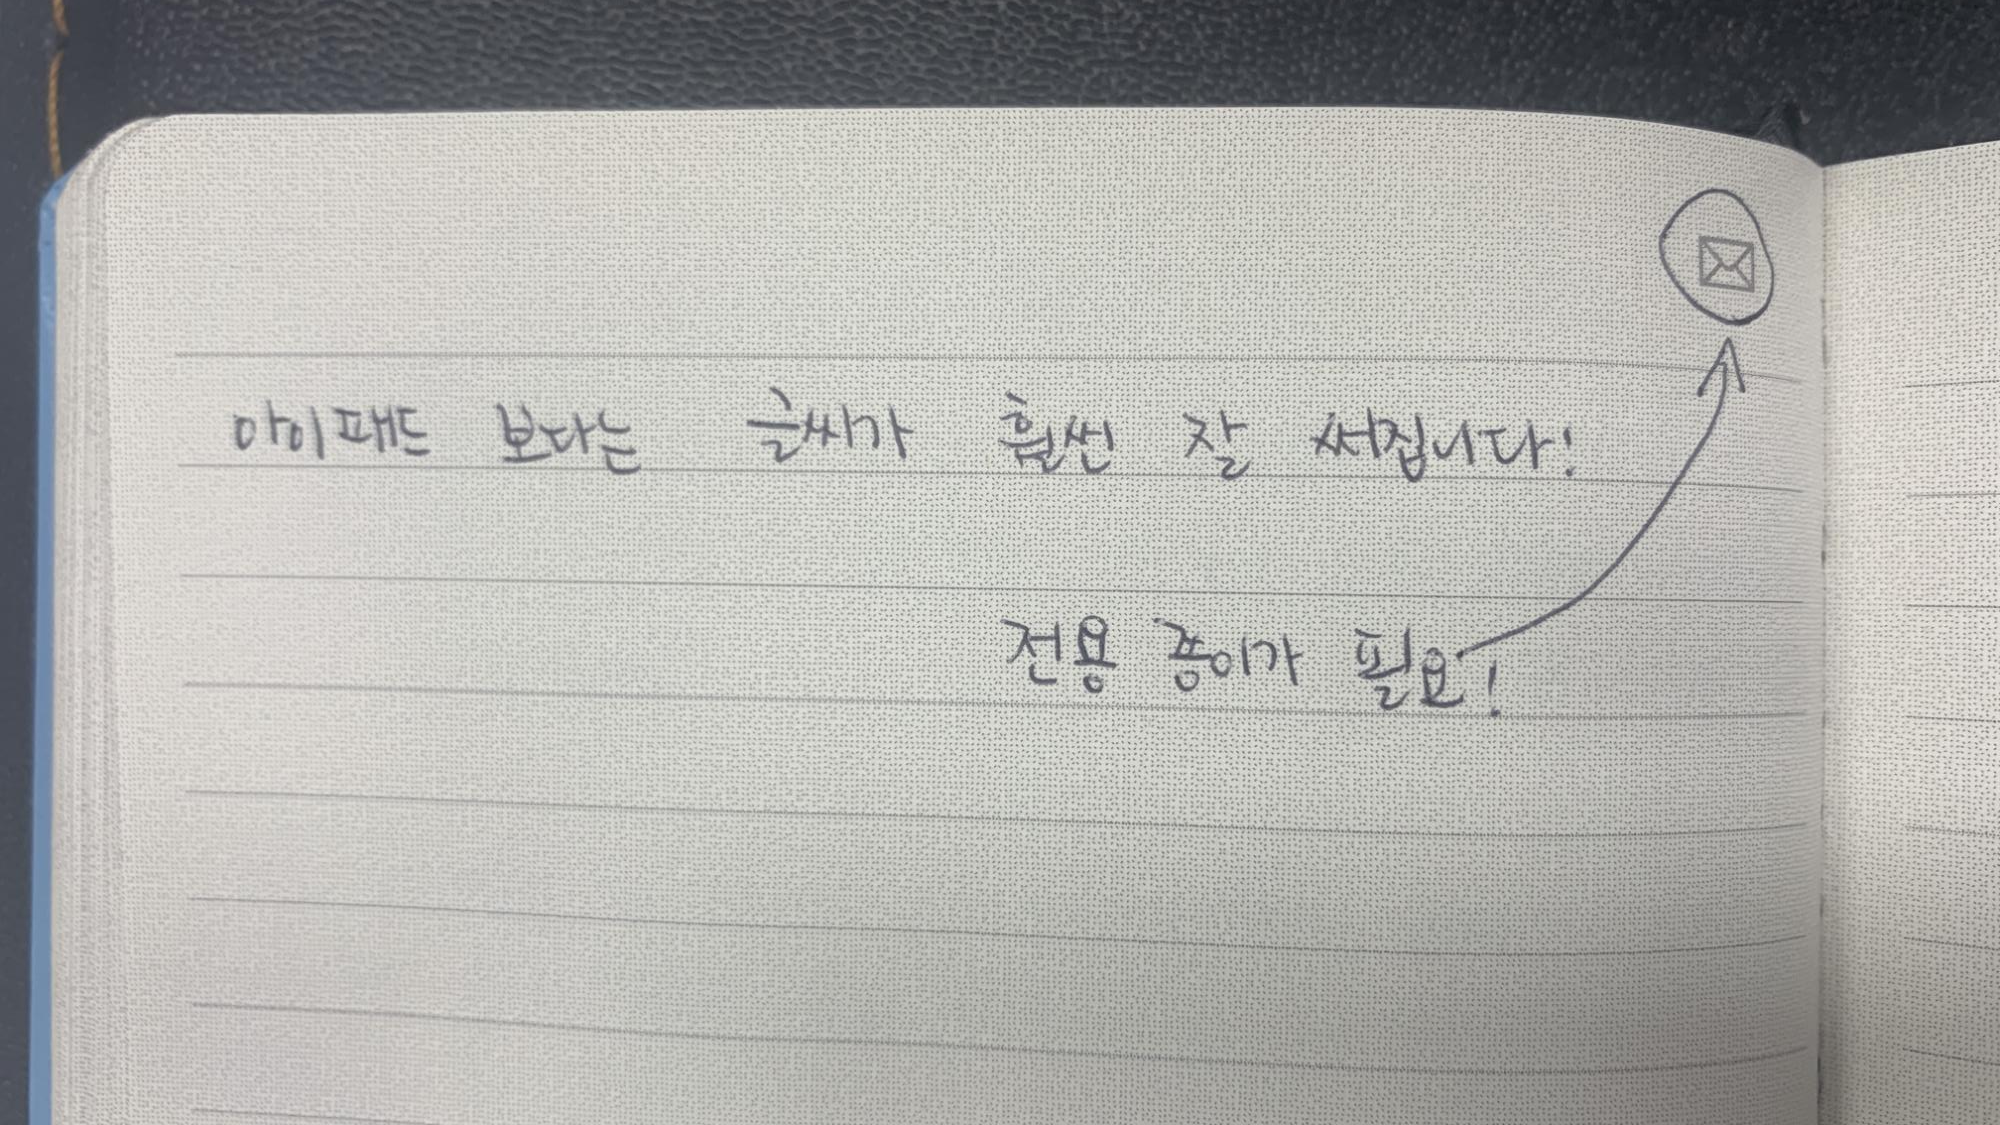 아이패드 보다는 글씨가 훨씬 잘 써집니다!
전용 종이가 필요!